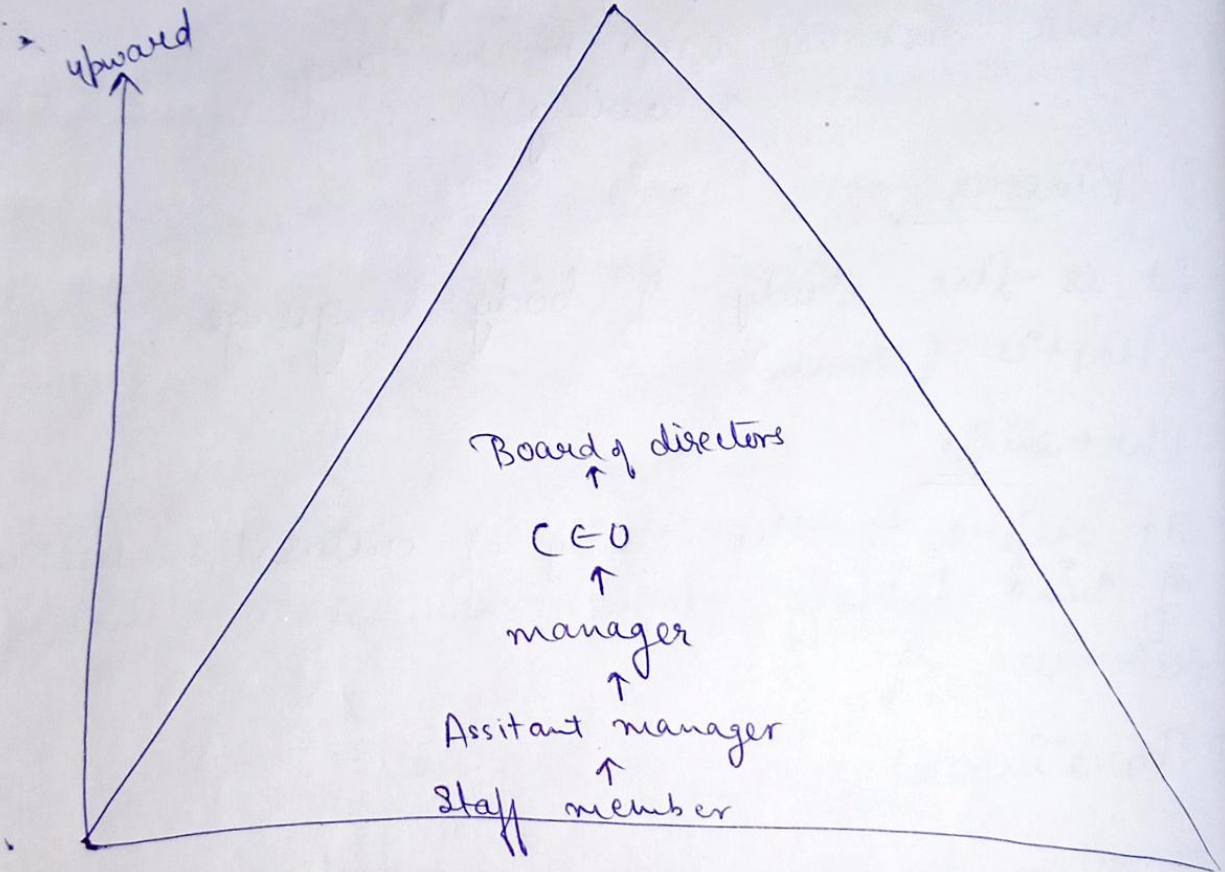 upward
Board of directors
↑
CEO
↑
manager
↑
Assitant manager
↑
Staff member